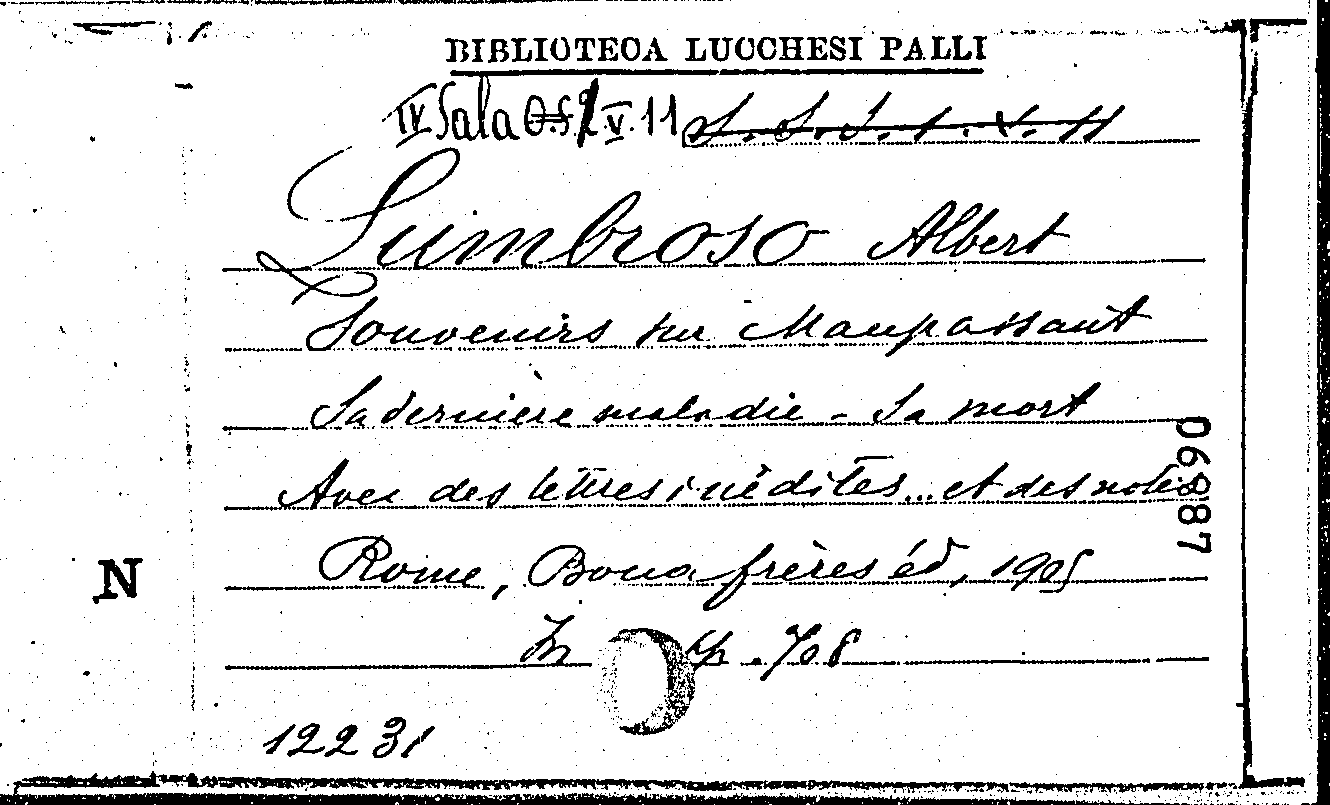 BIBLIOTECA LUCCHESI PALLI
IV Sala O.S. 2 V. 11 S. S. S. 1. V. 11
Lumbroso Albert
Souvenirs sur Maupassant
Sa dernière maladie - Sa mort
Avec des lettres inédites... et des notes
Rome, Bocca frères éd, 1905
In p. 708
12231
N
06887